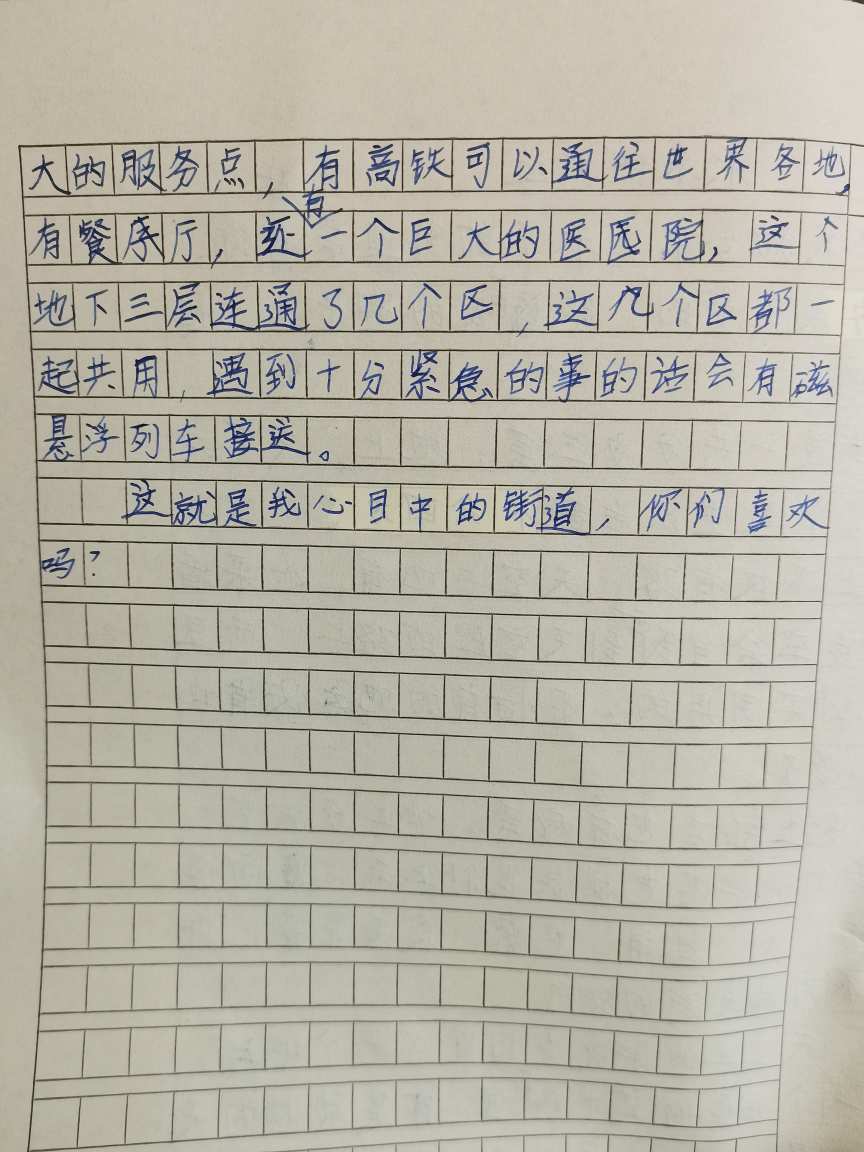 大的服务点，有高铁可以通往世界各地，
有餐厅，还有一个巨大的医院，这个
地下三层连通了几个区，这几个区都一
起共用，遇到十分紧急的事的话会有磁
悬浮列车接送。
这就是我心目中的街道，你们喜欢
吗？